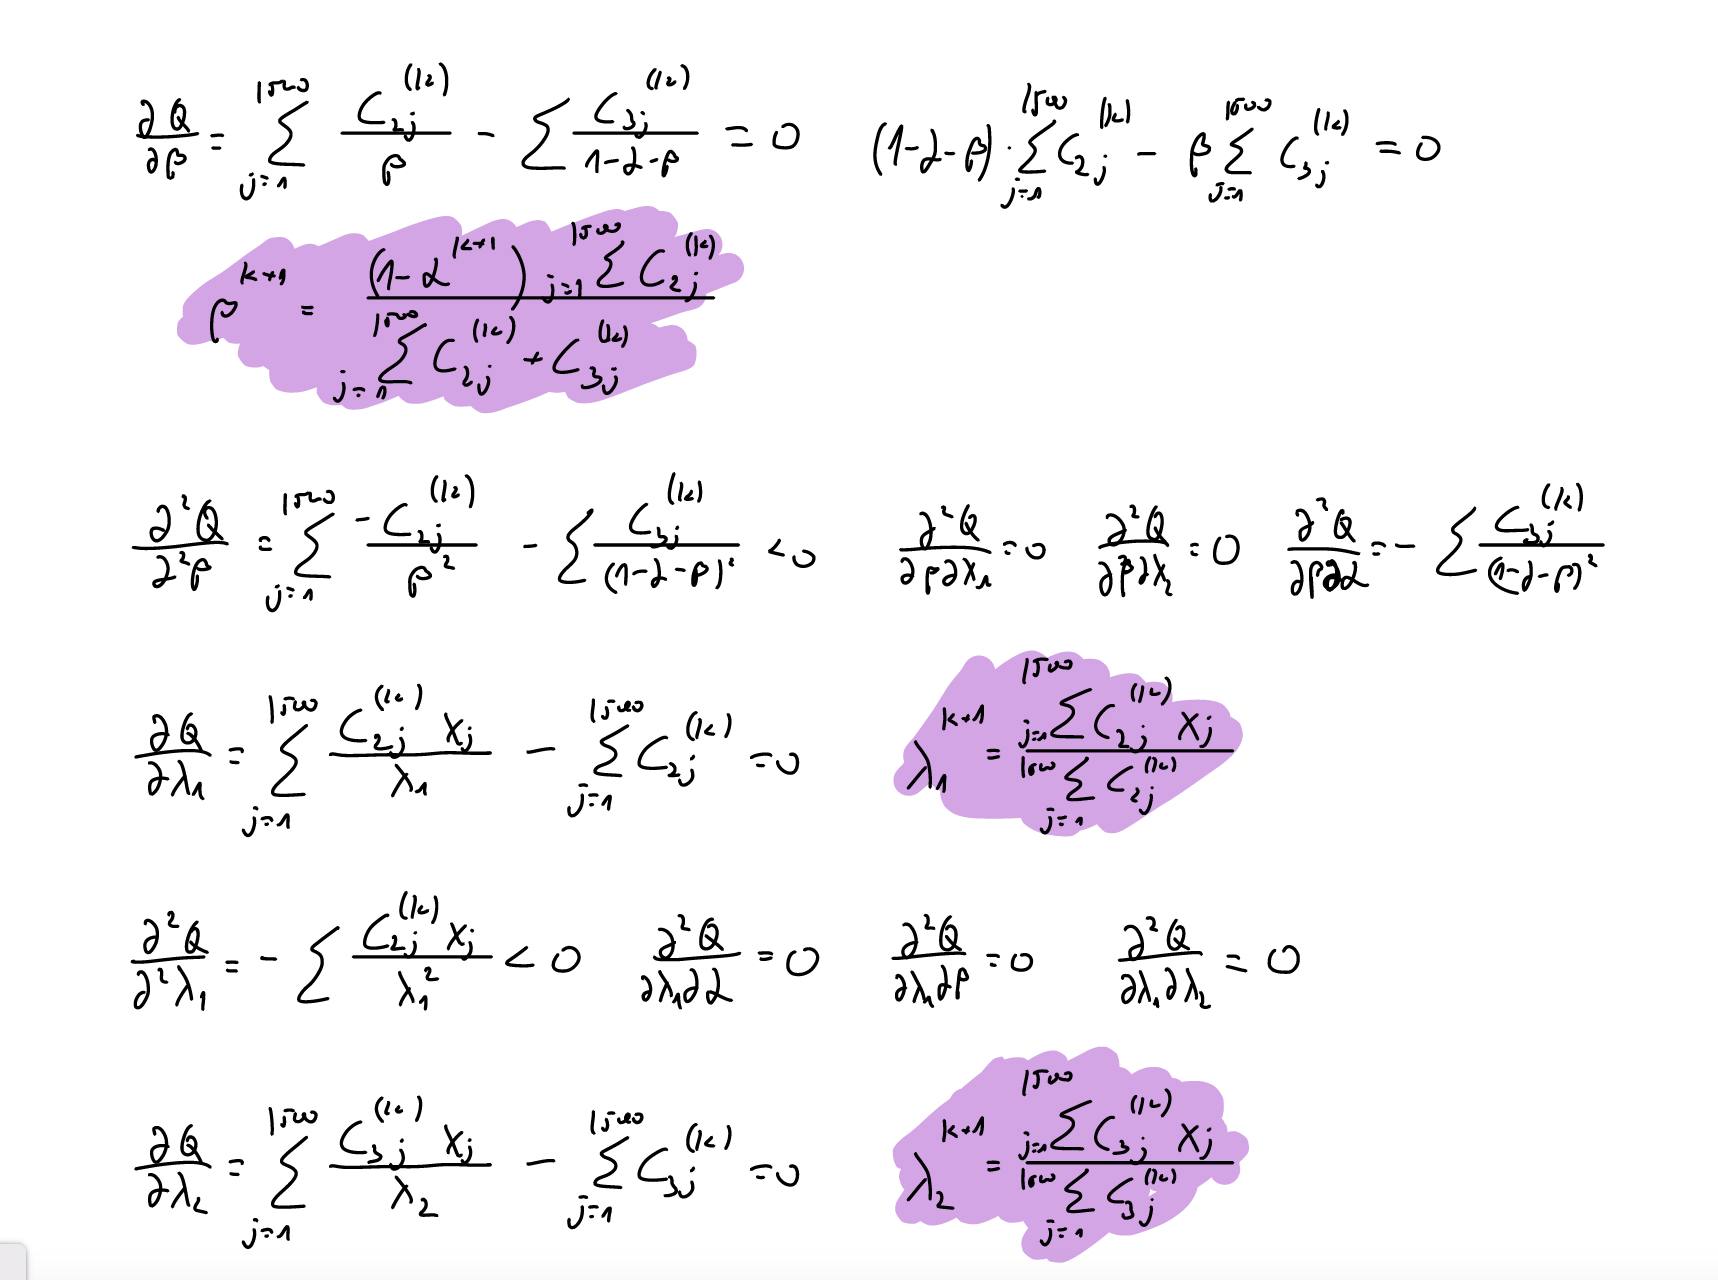 ∂Q/∂β = Σ_{j=1}^{1500} C_{2j}^{(k)}/β - Σ C_{3j}^{(k)}/(1-α-β) = 0   (1-α-β)·Σ_{j=1}^{1500} C_{2j}^{(k)} - β Σ_{j=1}^{1500} C_{3j}^{(k)} = 0
β^{k+1} = (1-α^{k+1}) Σ_{j=1}^{1500} C_{2j}^{(k)} / Σ_{j=1}^{1500} C_{2j}^{(k)} + C_{3j}^{(k)}
∂²Q/∂²β = Σ_{j=1}^{1500} -C_{2j}^{(k)}/β² - Σ C_{3j}^{(k)}/(1-α-β)² < 0   ∂²Q/∂β∂λ₁ = 0   ∂²Q/∂β∂λ₂ = 0   ∂²Q/∂β∂α = - Σ C_{3j}^{(k)}/(1-α-β)²
∂Q/∂λ₁ = Σ_{j=1}^{1500} C_{2j}^{(k)} x_j/λ₁ - Σ_{j=1}^{1500} C_{2j}^{(k)} = 0   λ₁^{k+1} = Σ_{j=1}^{1500} C_{2j}^{(k)} x_j / Σ_{j=1}^{1500} C_{2j}^{(k)}
∂²Q/∂²λ₁ = - Σ C_{2j}^{(k)} x_j/λ₁² < 0   ∂²Q/∂λ₁∂α = 0   ∂²Q/∂λ₁∂β = 0   ∂²Q/∂λ₁∂λ₂ = 0
∂Q/∂λ₂ = Σ_{j=1}^{1500} C_{3j}^{(k)} x_j/λ₂ - Σ_{j=1}^{1500} C_{3j}^{(k)} = 0   λ₂^{k+1} = Σ_{j=1}^{1500} C_{3j}^{(k)} x_j / Σ_{j=1}^{1500} C_{3j}^{(k)}